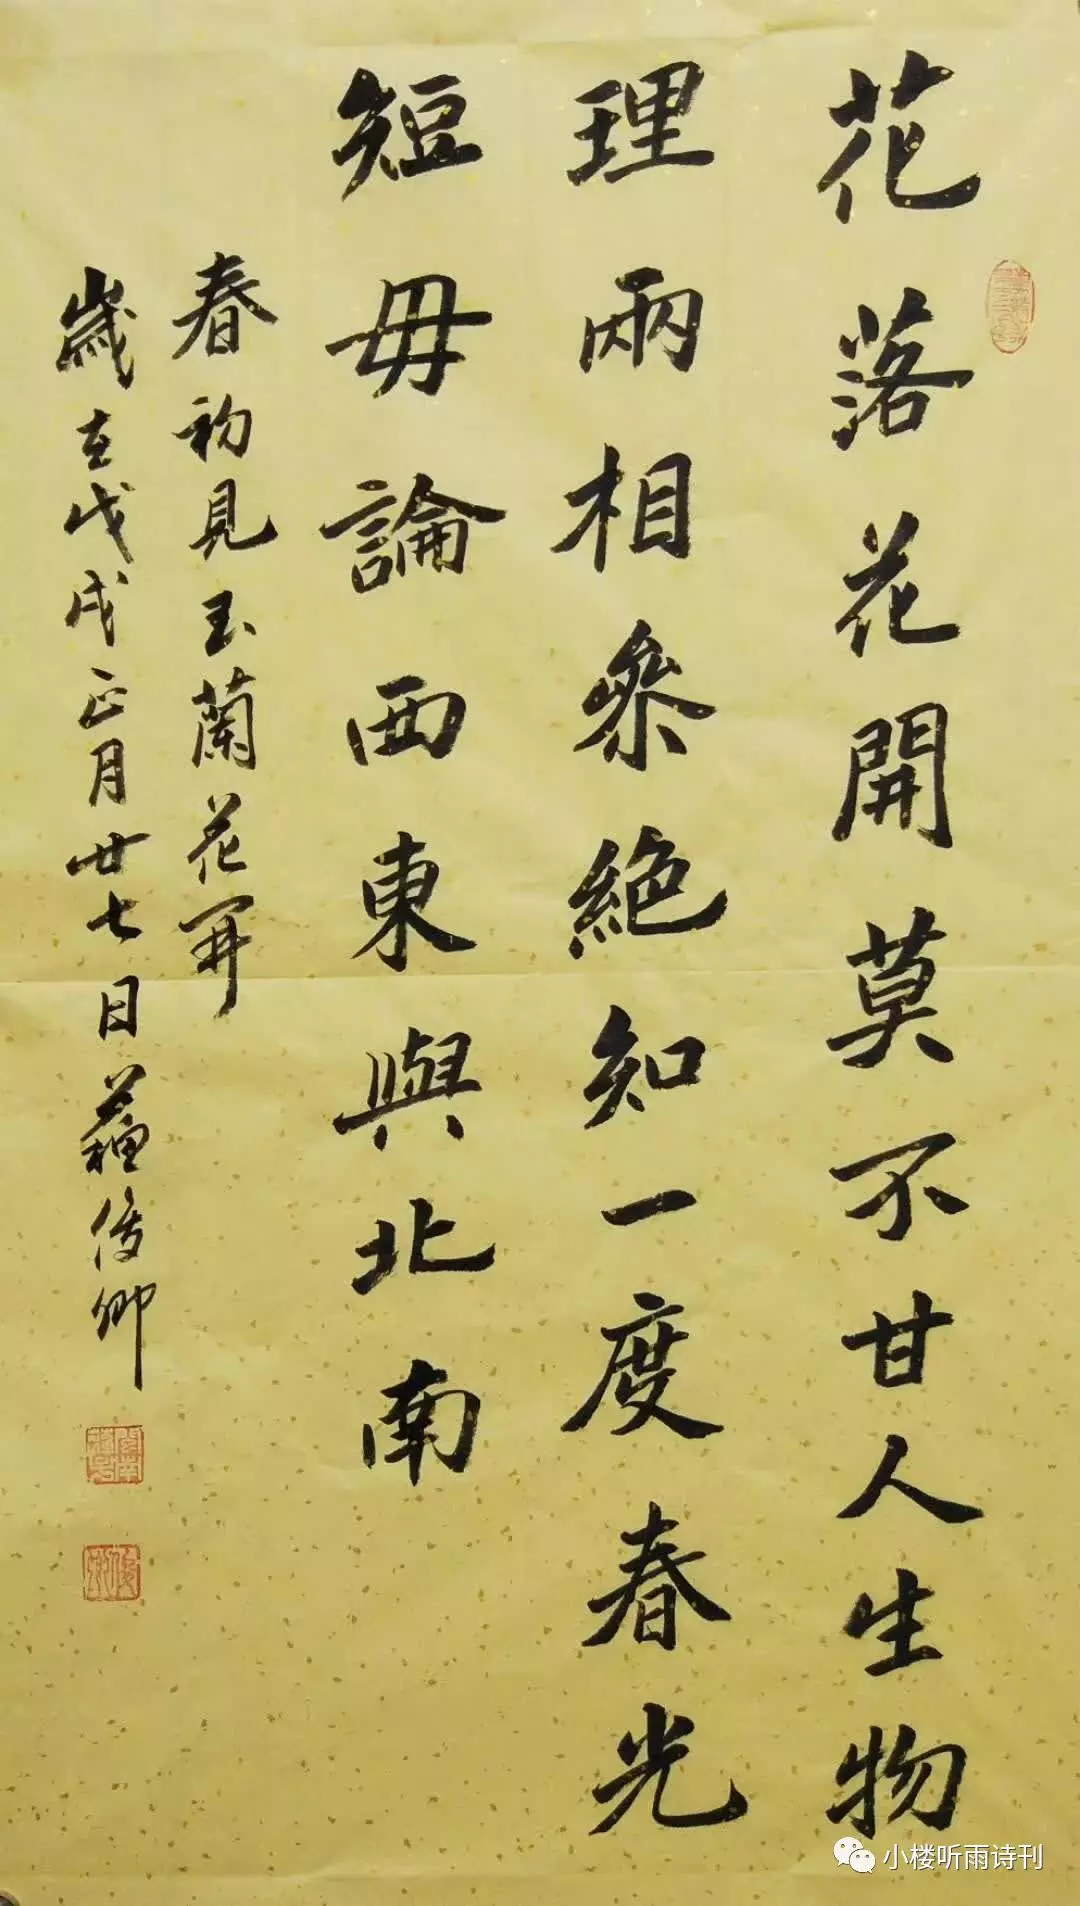 花落花開莫不甘人生物
理兩相參絕知一度春光
短毋論西東與北南
春初見玉蘭花開
歲在戊戌正月廿七日蘇俊卿
小楼听雨诗刊